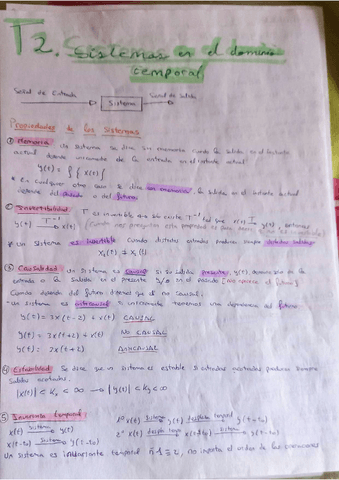 T2. Sistemas en el dominio
temporal
Señal de Entrada Sistema Señal de Salida
Propiedades de los Sistemas
① Memoria: Un sistema se dice sin memoria cuando la salida en el instante
actual depende únicamente de la entrada en el instante actual
y(t) = f{x(t)}
* En cualquier otro caso se dice con memoria, la salida en el instante actual
depende del pasado o del futuro.
② Invertibilidad:
y(t) T⁻¹ x(t)
* Un sistema es invertible cuando distintas entradas producen siempre distintas salidas
x₁(t) ≠ x₂(t)
③ Causalidad: Un Sistema es causal si su salida presente, y(t), depende de la
entrada o la salida en el presente y/o en el pasado
Cuando depende del futuro diremos que es no causal.
- Un sistema es anticausal si únicamente tenemos una dependencia del futuro
y(t) = 3x(t-2) + x(t) CAUSAL
y(t) = 3x(t+2) + x(t) NO CAUSAL
y(t) = 2x(t+2) ANTICAUSAL
④ Estabilidad: Se dice que un sistema es estable si entradas acotadas producen siempre
salidas acotadas.
|x(t)| < Kx < ∞ → |y(t)| < Ky < ∞
⑤ Invariante temporal:
x(t) Sistema y(t)
x(t-t₀) Sistema y(t-t₀)
1º x(t) Sistema y(t) desplaz temporal y(t-t₀)
2º x(t) desplaz temp x(t-t₀) Sistema y(t-t₀)
Un sistema es invariante temporal si 1=2, no importa el orden de las operaciones